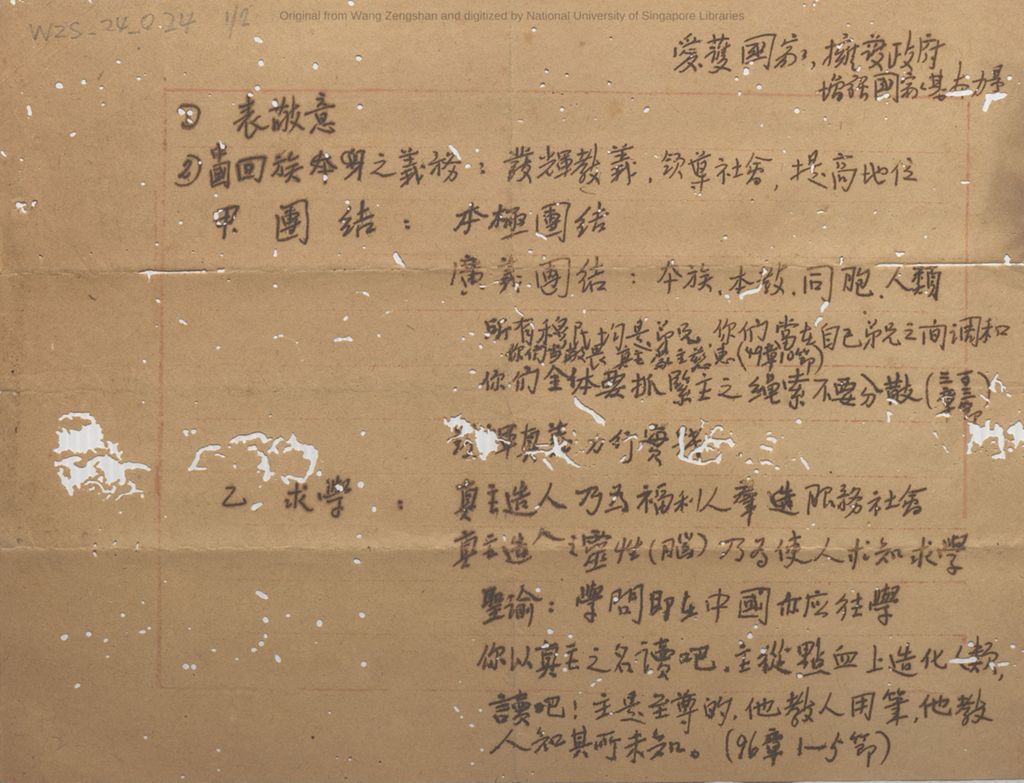 Original from Wang Zengshan and digitized by National University of Singapore Libraries
WZS_24_0.24 1/2
愛護國家, 擁護政府
增强國家基本力量
1) 表敬意
2) 回族本身之義務: 發輝教義, 領導社會, 提高地位
甲 團結: 本極團結
廣義團結: 本族, 本教, 同胞, 人類
所有穆民均是弟兄, 你們當在自己弟兄之間調和
你們當敬畏真主蒙主慈惠 (49章10節)
你們全体要抓緊主之繩索不要分散 (三章
發輝真 力行實踐
乙 求學: 真主造人乃為福利人羣造服務社會
真主造人之靈性 (腦) 乃為使人求知求學
聖諭: 學問即在中國亦应往學
你以真主之名讀吧, 主從點血上造化人類,
讀吧! 主是至尊的, 他教人用筆, 他教
人知其所未知。(96章1—5節)